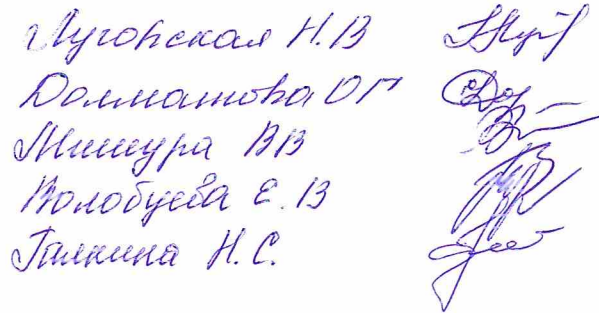 Луговская Н.В
Долматова О Г
Мишура ВВ
Волобуева Е.В
Галкина Н.С.